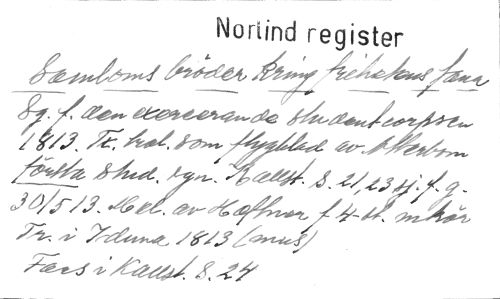 Norlind register
Samloms bröder kring frihetens fana
Sg. f. den exercerande studentcorpsen
1813. Tr. trol. som flygblad av Atterbom
första stud. syn. Kallst. S. 21, 23 sj. f. g.
30/5 13. Mel. av Hæffner f 4-st. mkör
Tr. i Iduna 1813 (mus)
Facs i Kallst. S. 24